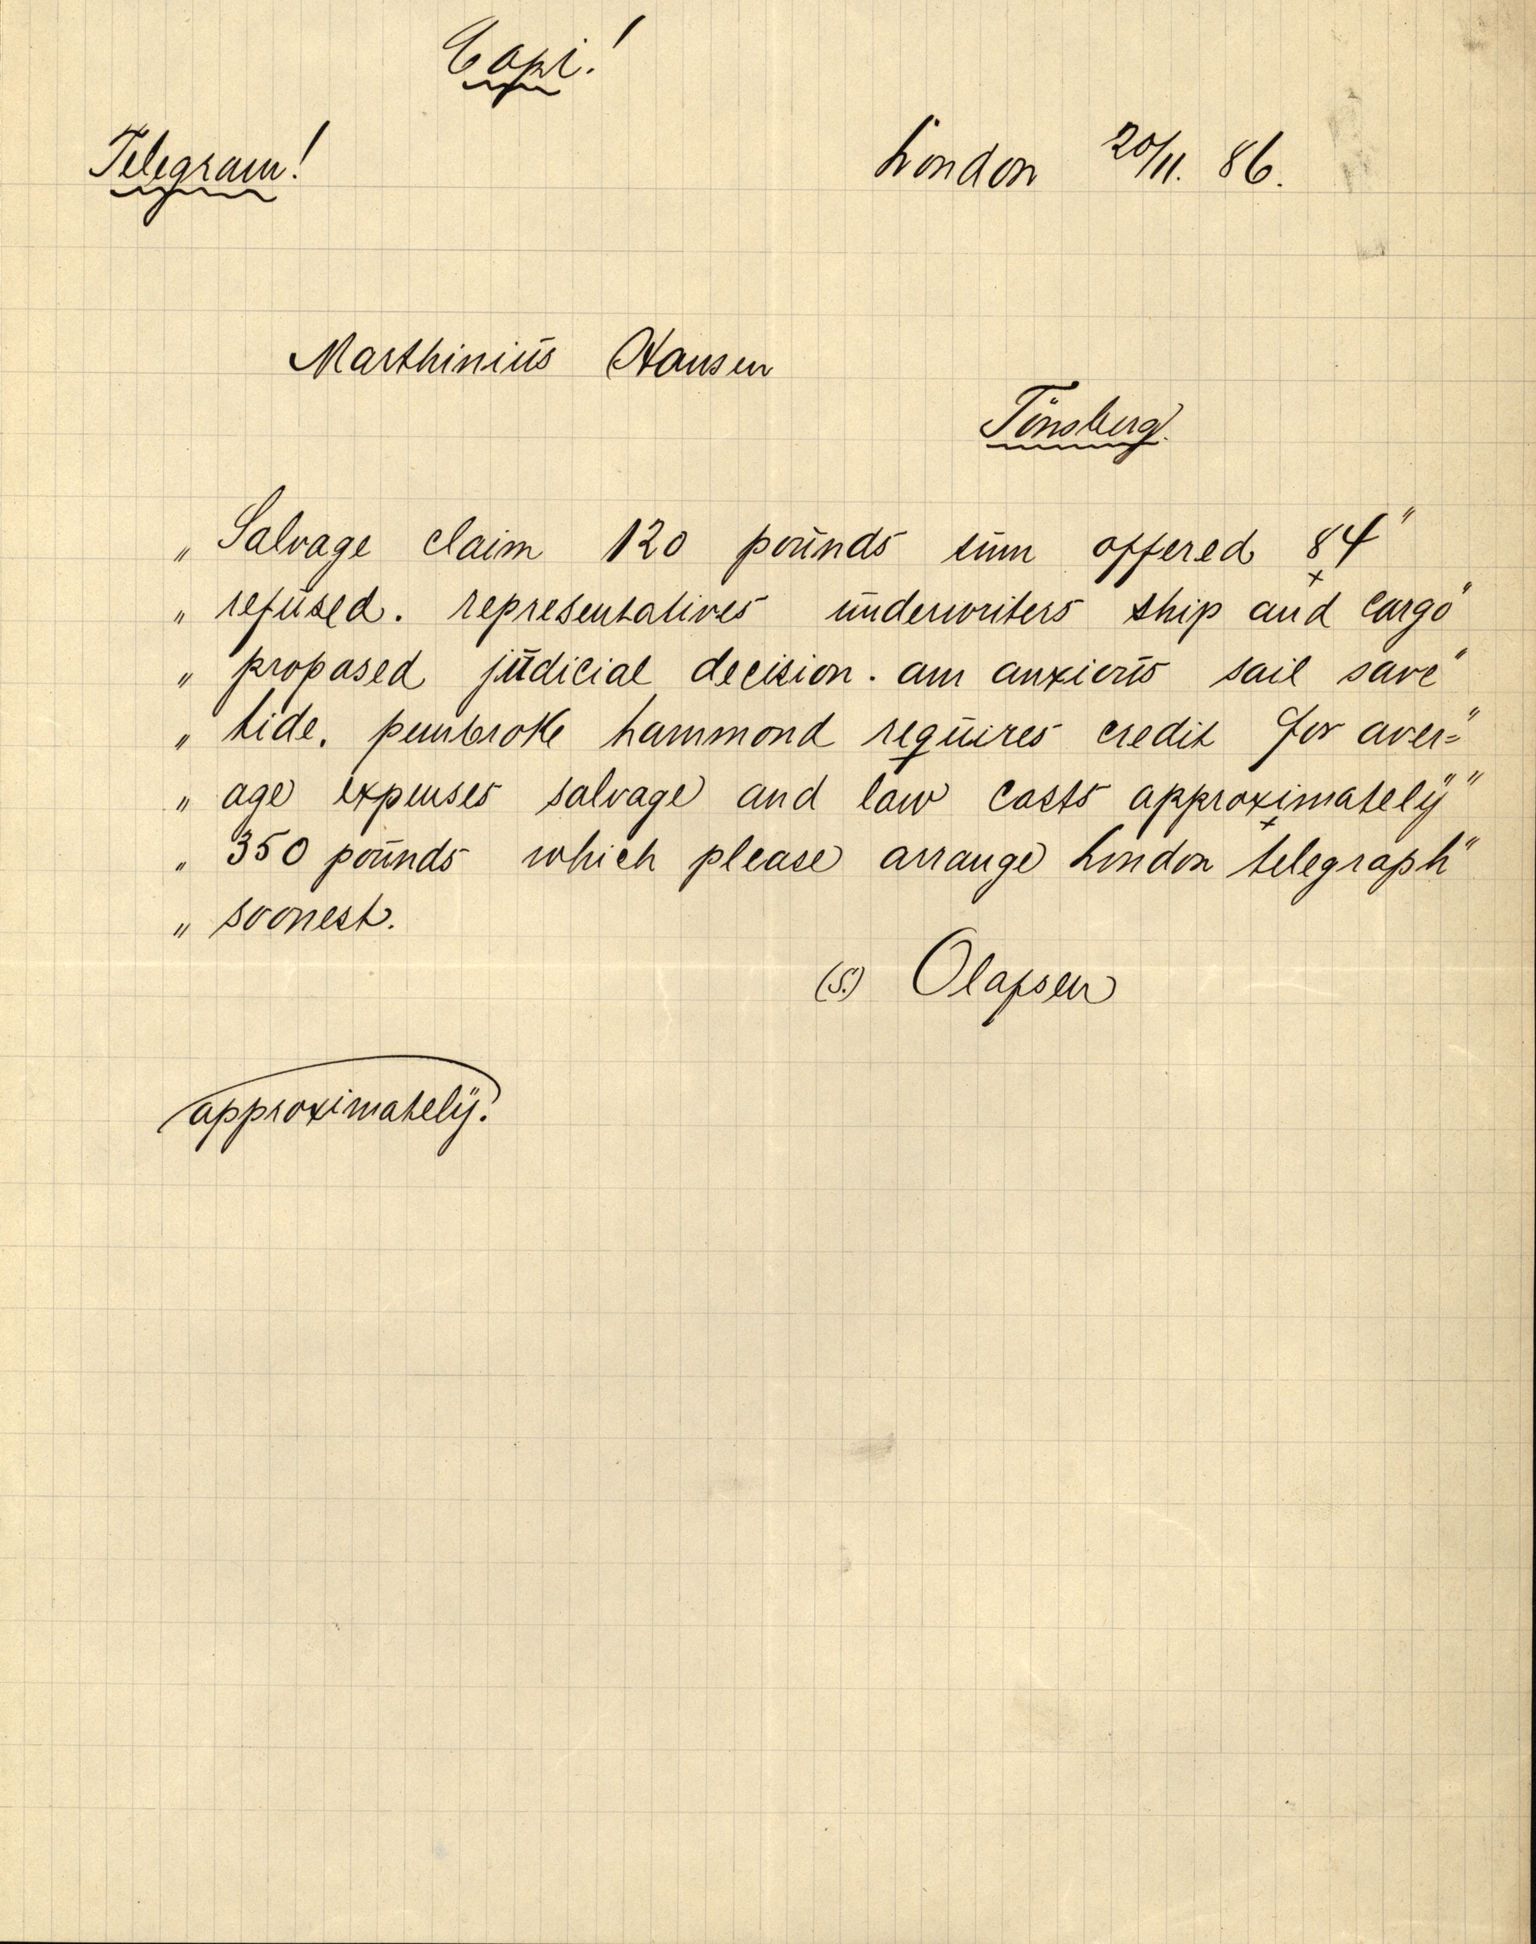 Copi!
Telegram!
London 20/11. 86.
Marthinius Hansen
Tönsberg.
„ Salvage claim 120 pounds sum offered 84 "
„ refused. representatives underwriters ship and cargo "
„ proposed judicial decision. am anxious sail save "
„ tide. pembroke hammond requires credit for aver= "
„ age expenses salvage and law costs approximatelÿ "
„ 350 pounds which please arrange London telegraph "
„ soonest.
(S.) Olafsen
approximatelÿ.